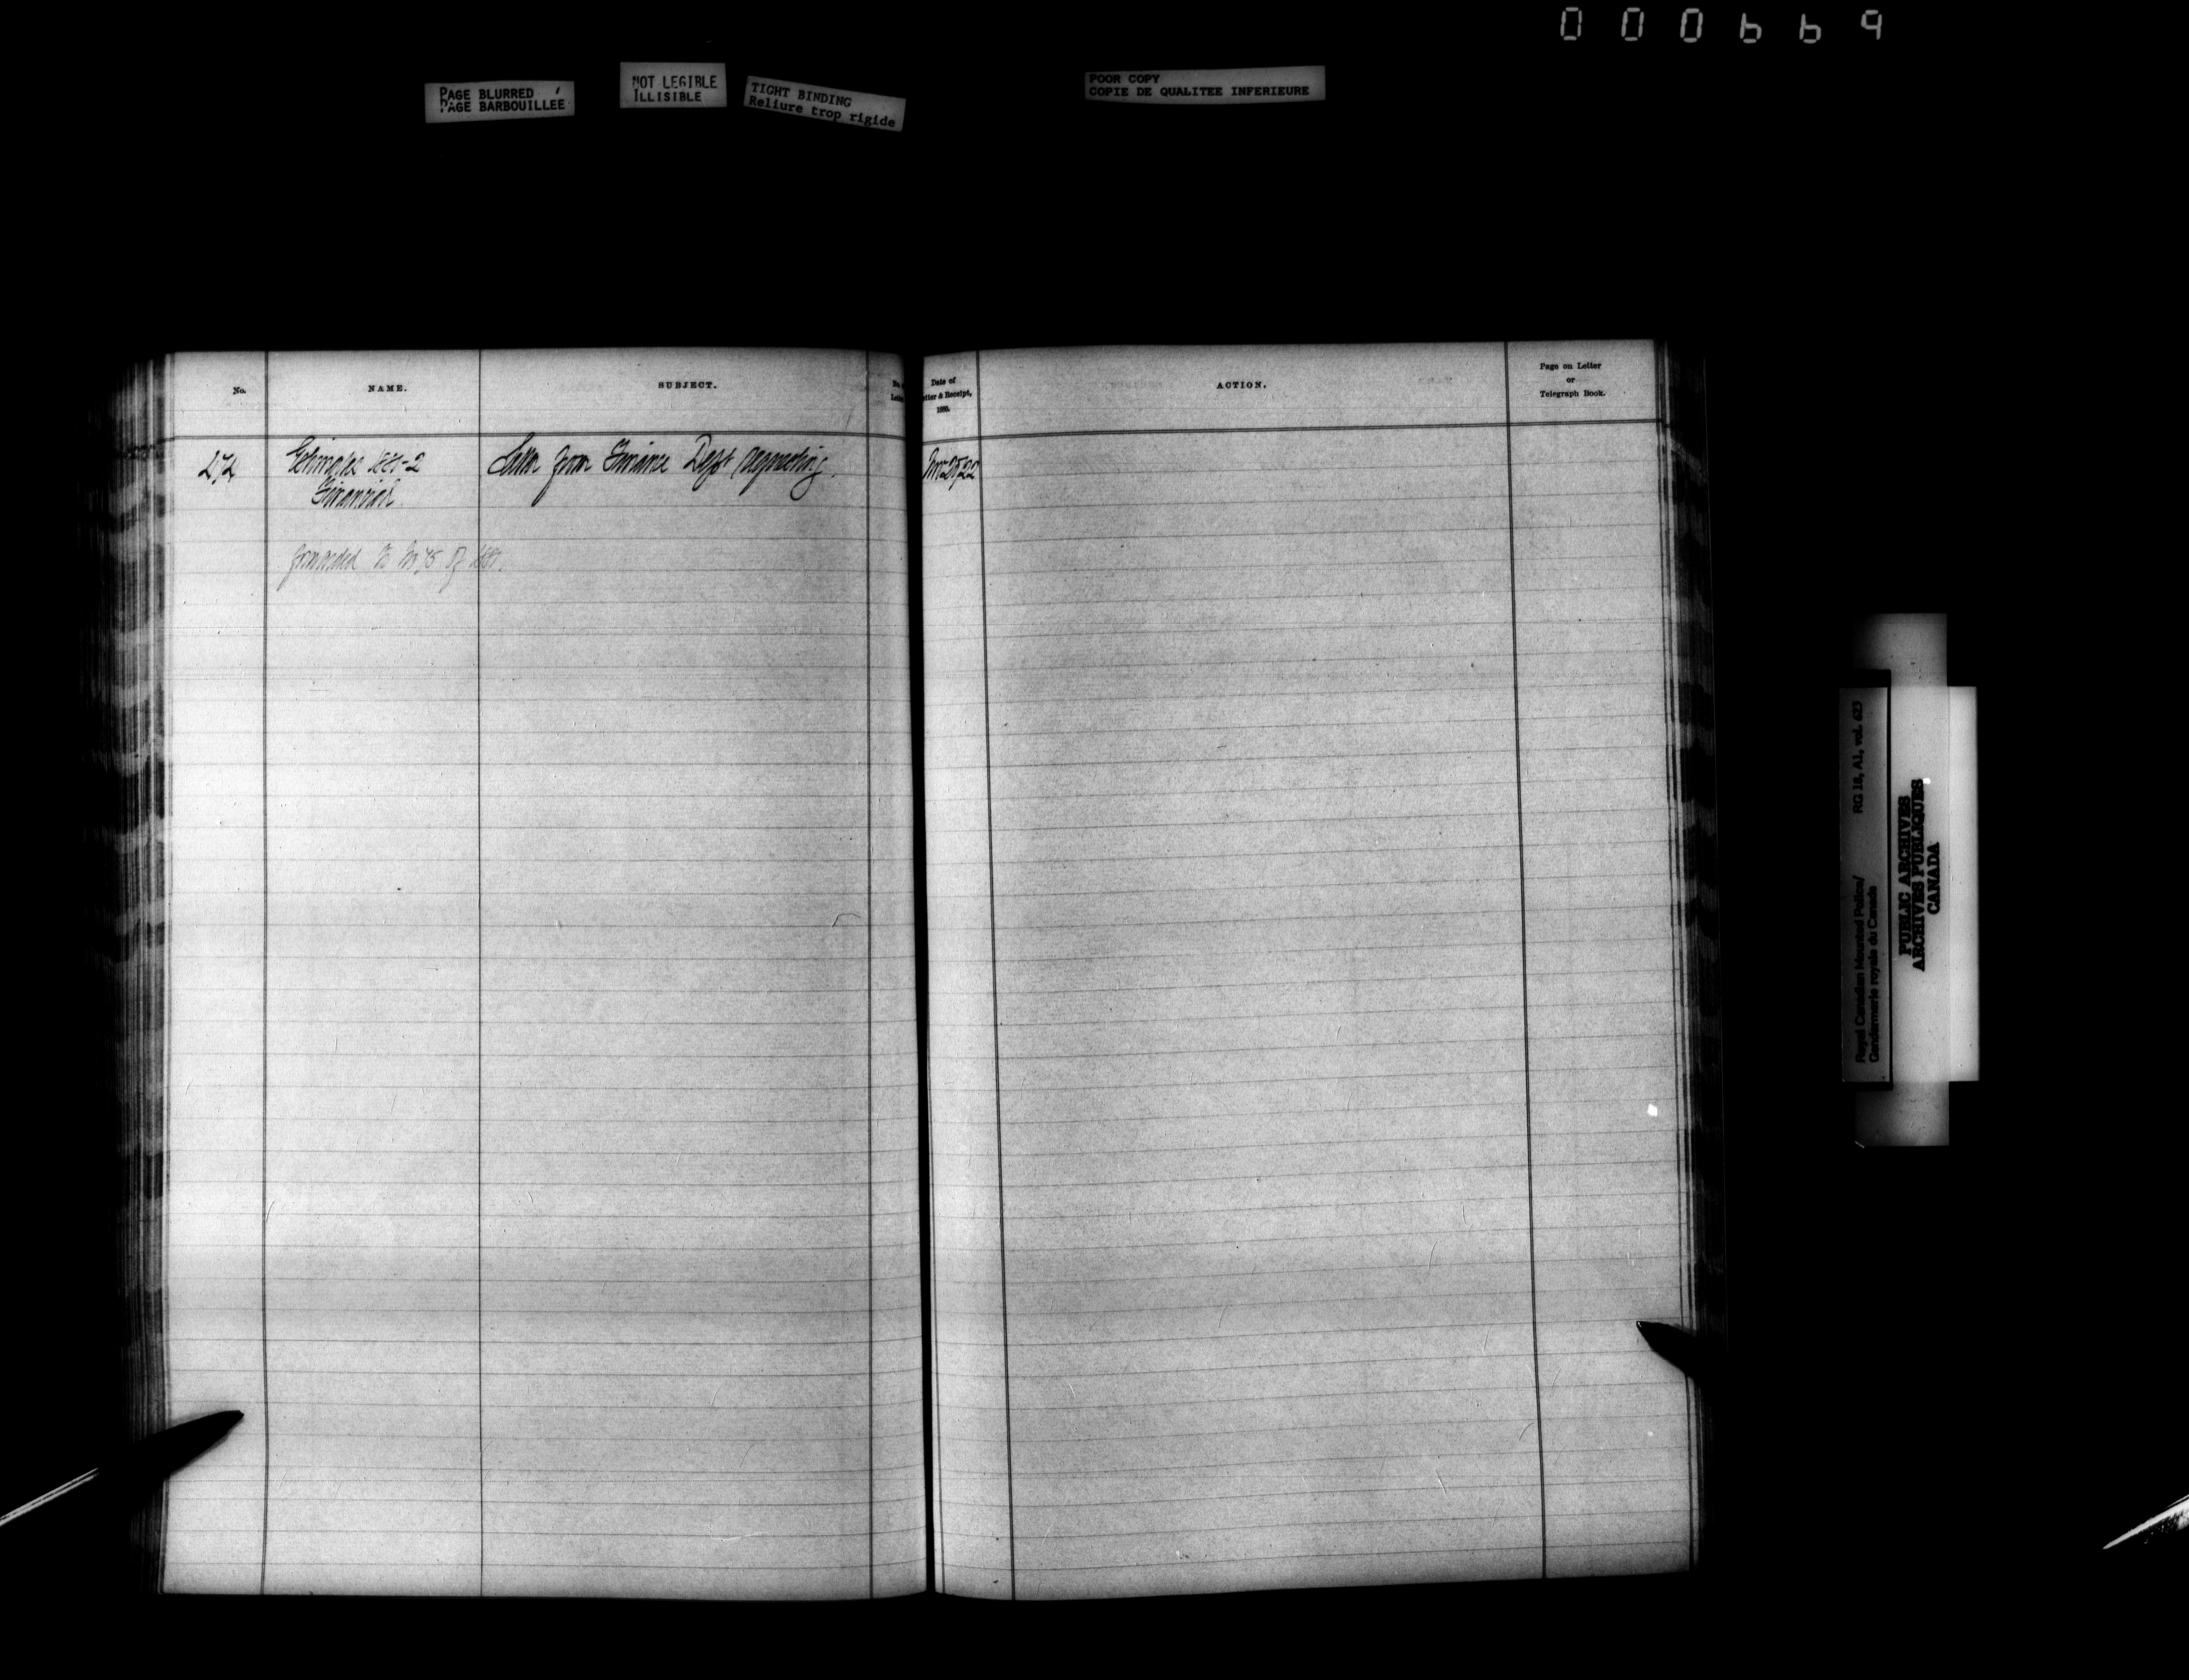 000669
PAGE BLURRED
PAGE BARBOUILLEE
NOT LEGIBLE
ILLISIBLE
TIGHT BINDING
Reliure trop rigide
POOR COPY
COPIE DE QUALITEE INFERIEURE
No.
NAME.
SUBJECT.
Date of
Letter & Receipt,
1880.
ACTION.
Page on Letter
or
Telegraph Book.
Estimates 1881-2
Financial
Letter from Finance Dept requesting.
forwarded to No 75 of 1881.
Royal Canadian Mounted Police/
Gendarmerie royale du Canada
RG 18, A1, vol. 623
PUBLIC ARCHIVES
ARCHIVES PUBLIQUES
CANADA